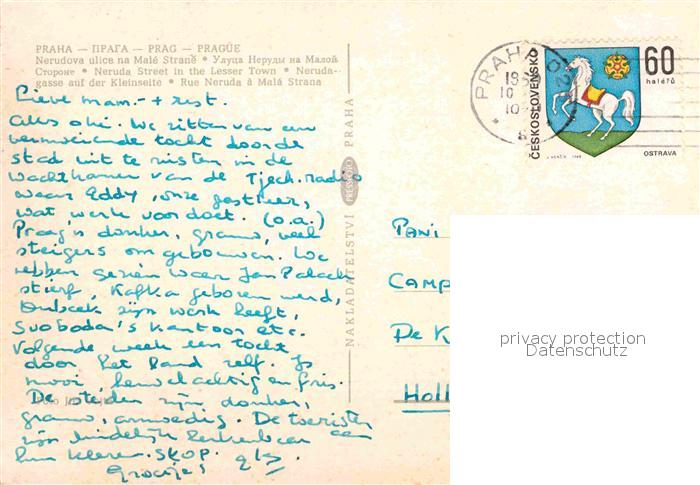 PRAHA — ПРАГА — PRAG — PRAGUE
Nerudova ulice na Malé Straně • Улица Неруды на Малой
Стороне • Neruda Street in the Lesser Town • Neruda-
gasse auf der Kleinseite • Rue Neruda à Malá Strana
Lieve Mam. + rest.
Alles oké. We zitten van een
vermoeiende tocht door de
stad uit te rusten in de
wachtkamer van de Tjech. radio
waar Eddy, onze gastheer,
wat werk voor doet. (o.a.)
Praag's donker, grauw, veel
steigers om gebouwen. We
hebben gezien waar Jan Palach
stierf, Kafka geboren werd,
Dubcek zijn werk heeft,
Svoboda's kantoor etc.
Volgende week een tocht
door het land zelf. Is
mooi, heuvelachtig en fris.
De steden zijn donker,
grauw, armoedig. De toeristen
zijn duidelijk herkenbaar aan
hun kleren. SKOP.
Groetjes
NAKLADATELSTVÍ PRESSFOTO PRAHA
PRAHA
ČESKOSLOVENSKO
60
haléřů
OSTRAVA
PANI
CAMP
DE K
HOLL
privacy protection
Datenschutz